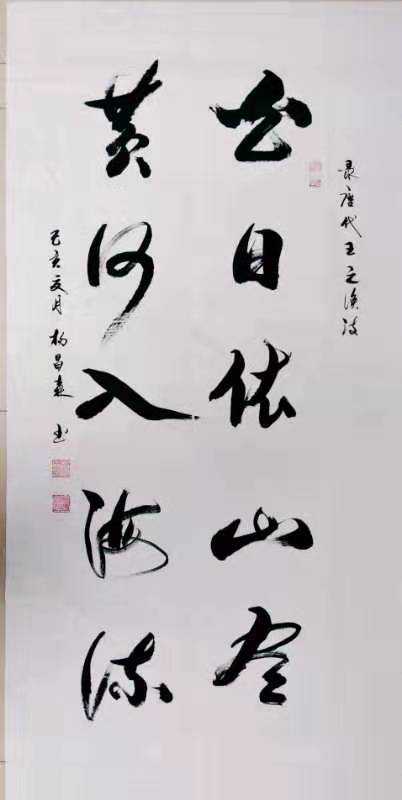 录唐代王之涣诗
白日依山尽
黄河入海流
己亥夏月 杨昌 书